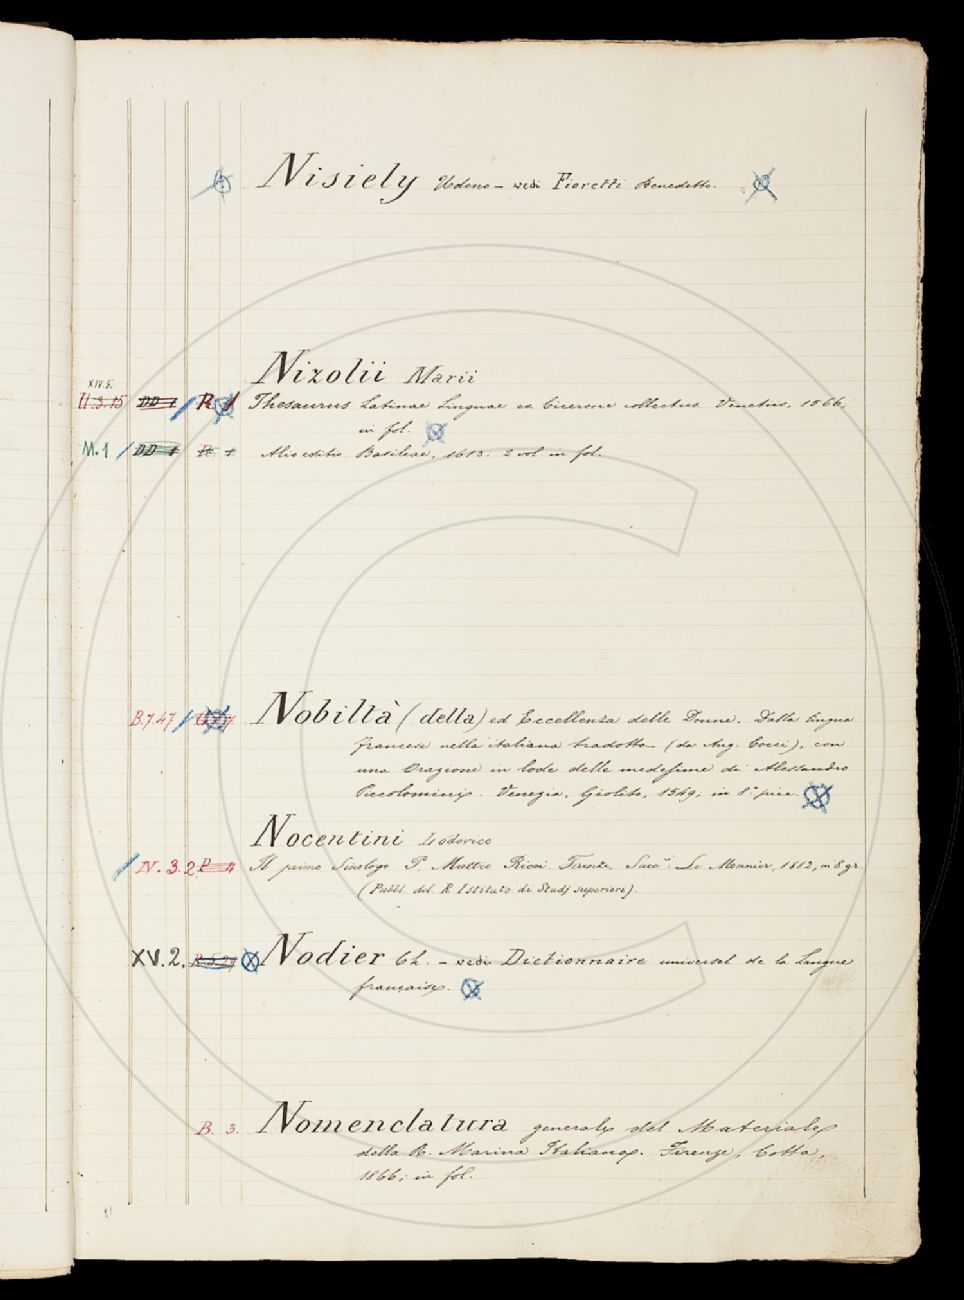 Nisiely Udeno – vedi Fioretti Benedetto.
Nizolii Marii
XIV.5.
II.3.15 DD 1 R 1 Thesaurus Latinae Linguae ex Cicerone collectus Venetiis, 1566,
in fol.
M.1 DD 1 R 1 Alia editio Basileae, 1613. 2 vol in fol.
B.7.47 Nobiltà (della) ed Eccellenza delle Donne. Dalla lingua
francese nella italiana tradotta (da Aug. Cocci), con
una Orazione in lode delle medesime di Alessandro
Piccolomini. Venezia, Giolito, 1549, in 8° picc.
Nocentini Lodovico
IV.3.2 Il primo Sinologo P. Matteo Ricci. Firenze, Succ.i Le Monnier, 1882, in 8 gr.
(Pubbl. del R. Istituto di Studj superiori).
XV.2. Nodier Ch. – vedi Dictionnaire universel de la Langue
française.
B. 3. Nomenclatura generale del Materiale
della R. Marina Italiana. Firenze, Cotta,
1866; in fol.